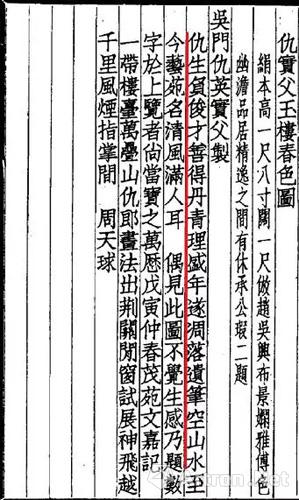 仇實父玉樓春色圖
絹本高一尺八寸闊一尺倣趙吳興布景嫻雅傅色
幽澹品居精逸之間有休承公瑕二題
吳門仇英實父製
仇生負俊才善得丹青理盛年遂凋落遺筆空山水至
今藝苑名清風滿人耳 偶見此圖不覺生感乃題數
字於上覽者尚當寶之萬歷戊寅仲春茂苑文嘉記
一帶樓臺萬疊山仇郎畫法出荆關閒窗試展神飛越
千里風煙指掌間 周天球